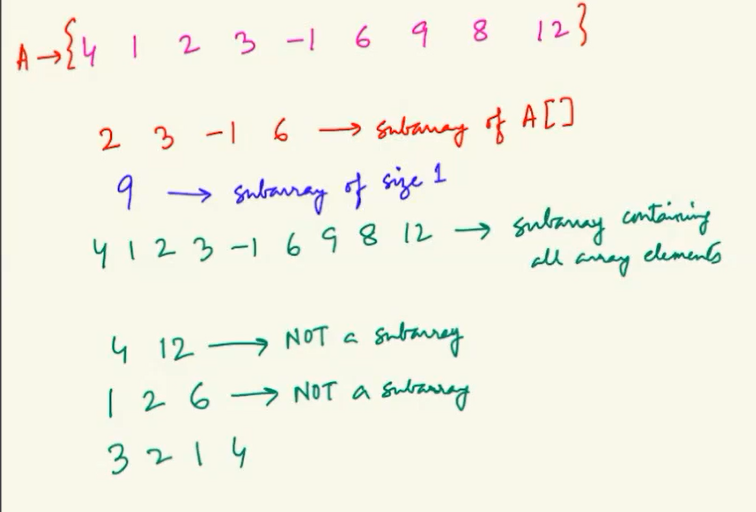 A → {4 1 2 3 -1 6 9 8 12}
2 3 -1 6 → subarray of A[]
9 → subarray of size 1
4 1 2 3 -1 6 9 8 12 → subarray containing
all array elements
4 12 → NOT a subarray
1 2 6 → NOT a subarray
3 2 1 4